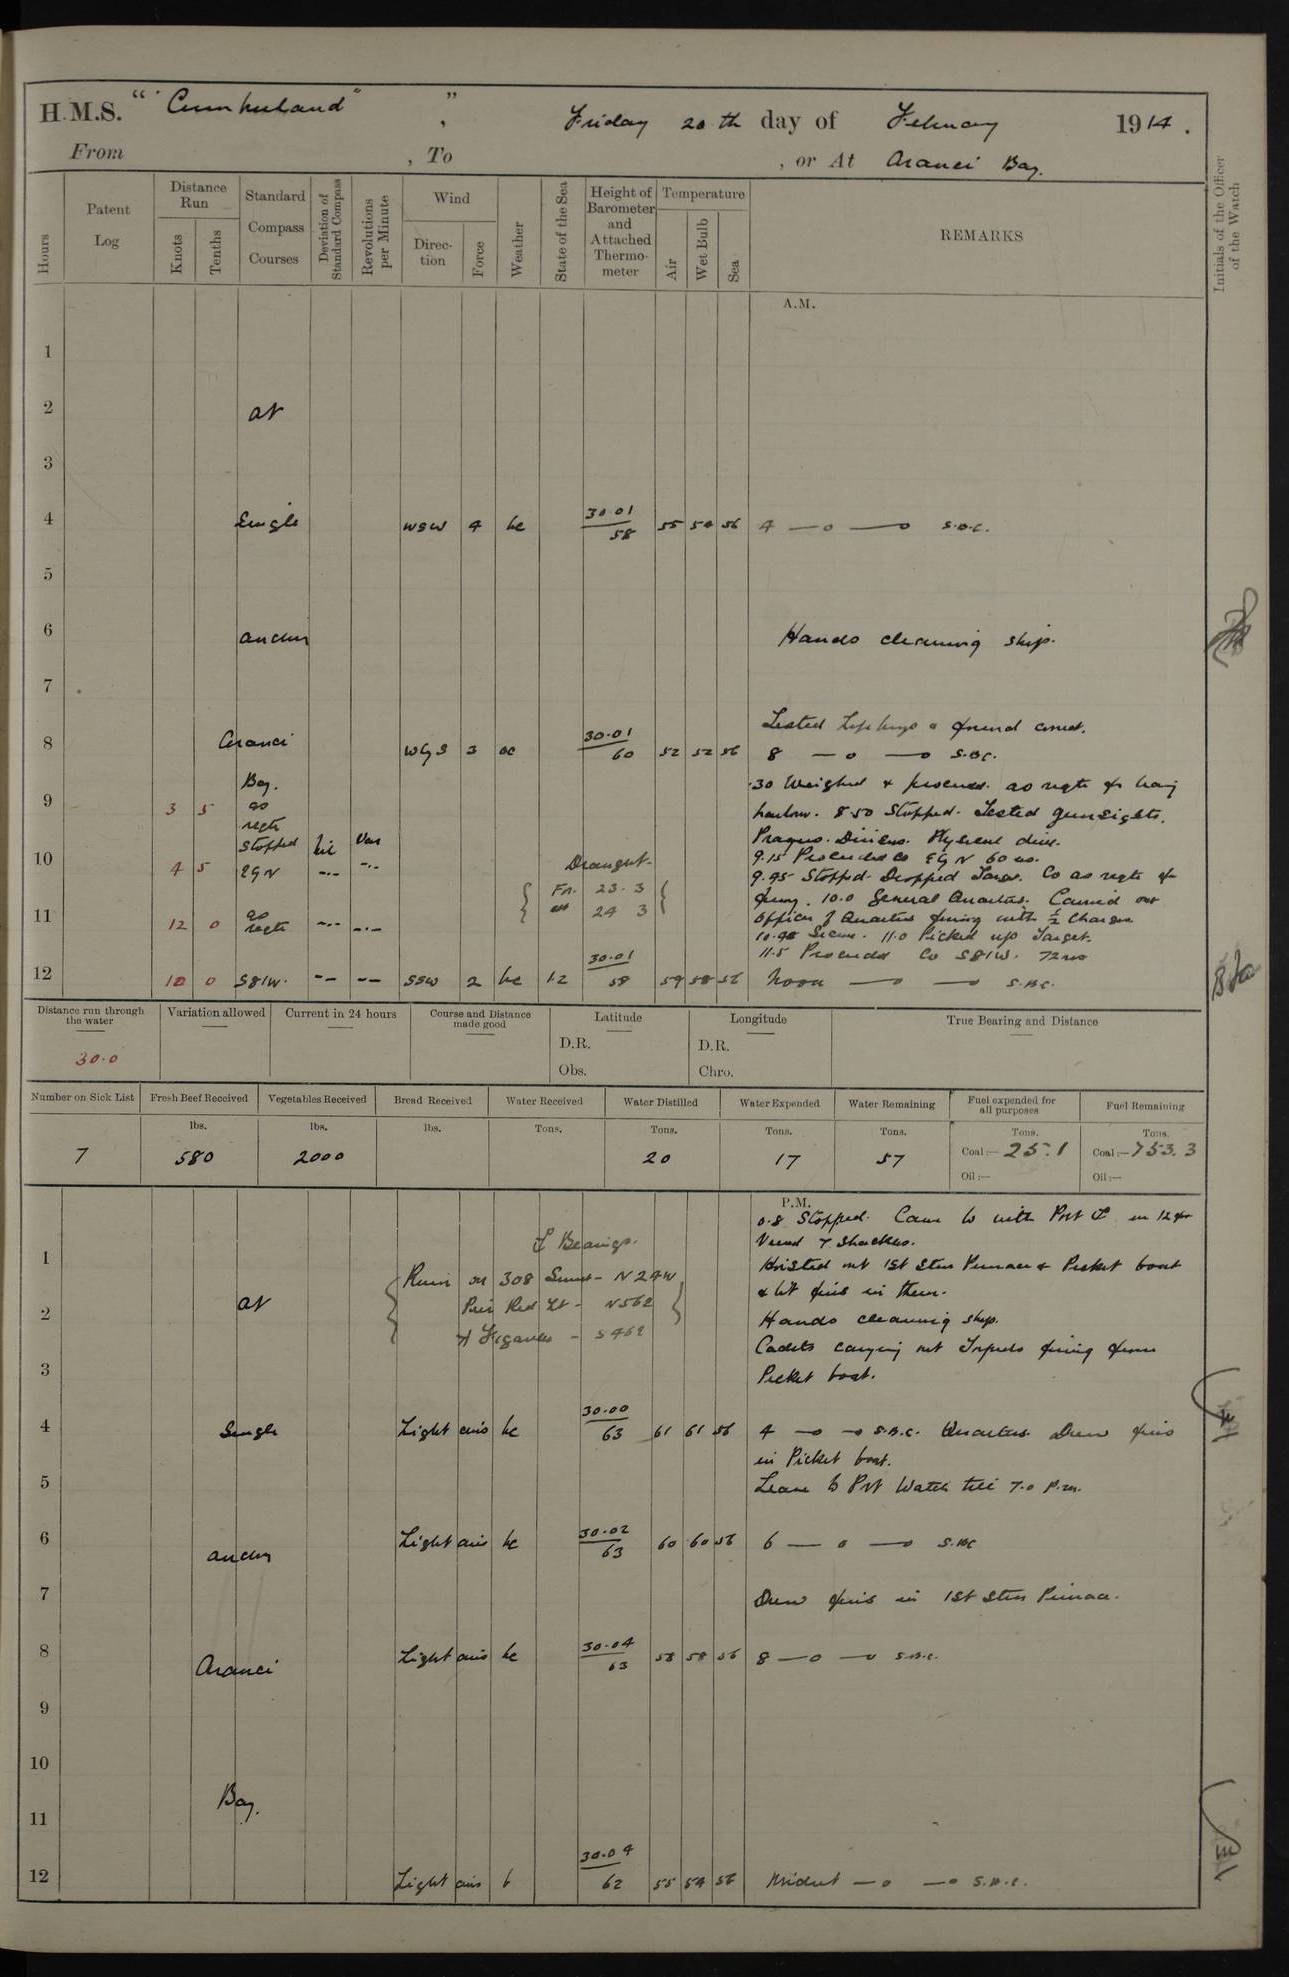 H.M.S. " Cumberland " , Friday 20th day of February 1914.
From , To , or At Aranci Bay.
Hours
Patent Log
Distance Run
Knots
Tenths
Standard Compass Courses
Deviation of Standard Compass
Revolutions per Minute
Wind
Direction
Force
Weather
State of the Sea
Height of Barometer and Attached Thermometer
Temperature
Air
Wet Bulb
Sea
REMARKS
Initials of the Officer of the Watch
A.M.
1
2 at
3
4 Single WSW 4 bc 30.01 / 58 55 54 56 4 — o — o S.B.C.
5
6 anchor Hands cleaning ship.
7
Tested & found correct.
8 Aranci WbyS 3 oc 30.01 / 60 52 52 56 8 — o — o S.B.C.
Bay. .30 Weighed & proceeded as reqte for
9 3 5 as reqte harbour. 8.50 Stopped. Tested gunsights.
stopped Prayers. Divisions. Physical drill.
9.15 Proceeded Co EbyN 60 revs.
10 4 5 EbyN Draught-
9.45 Stopped. Dropped Target. Co as reqte for
For. 23. 3
firing. 10.0 General Quarters. Carried out
24 3
11 12 0 as reqte Officers of Quarters firing with ½ Charges
10.45 Secure. 11.0 Picked up Target.
11.5 Proceeded Co S81W. 72 revs
12 10 0 S81W. SSW 2 bc 12 30.01 / 58 59 58 56 Noon — o — o S.B.C.
Distance run through the water
Variation allowed
Current in 24 hours
Course and Distance made good
Latitude
Longitude
True Bearing and Distance
30.0
D.R.
Obs.
D.R.
Chro.
Number on Sick List
Fresh Beef Received
Vegetables Received
Bread Received
Water Received
Water Distilled
Water Expended
Water Remaining
Fuel expended for all purposes
Fuel Remaining
lbs. lbs. lbs. Tons. Tons. Tons. Tons. Tons. Tons.
7 580 2000 20 17 57 Coal:— 25.1 Coal:— 753.3
Oil:— Oil:—
P.M.
0.8 Stopped. Came to with Port in 12 fms
Veered 7 shackles.
1 Bearings.
Hoisted out 1st Stm Pinnace & Picket boat
Ruin on 308 Summit - N24W
& lit fires in them.
2 at Red Lt - N56E
Hands cleaning ship.
Figarolo - S46E
Cadets carrying out Torpedo firing from
3 Picket boat.
4 Single Light airs bc 30.00 / 63 61 61 56 4 — o — o S.B.C. Quarters. Drew fires
in Picket boat.
5 Leave to Port Watch till 7.0 p.m.
6 anchor Light airs bc 30.02 / 63 60 60 56 6 — o — o S.BC
7 Drew fires in 1st Stm Pinnace.
8 Aranci Light airs bc 30.04 / 63 58 58 56 8 — o — o S.B.C.
9
10
11 Bay.
12 Light airs b 30.04 / 62 55 54 56 Midnt — o — o S.B.C.